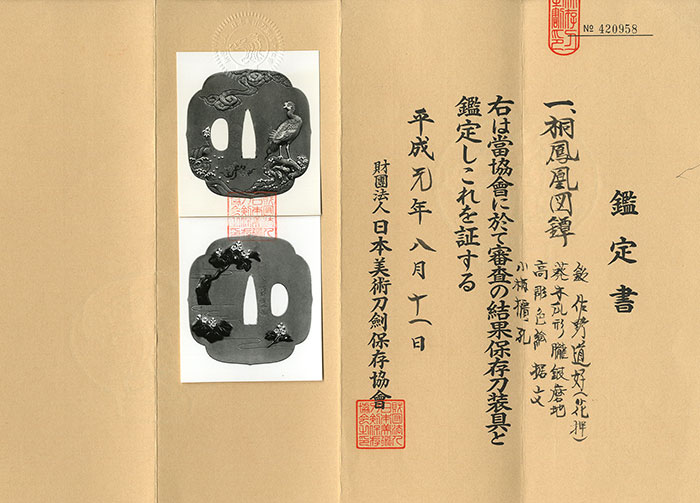 № 420958
鑑定書
一、桐鳳凰図鐔
銘 作野道好(花押)
葵木瓜形 朧銀磨地
高彫色絵 据文
小柄櫃一孔
右は當協會に於て審査の結果保存刀装具と
鑑定しこれを証する
平成元年八月十一日
財團法人 日本美術刀劍保存協會